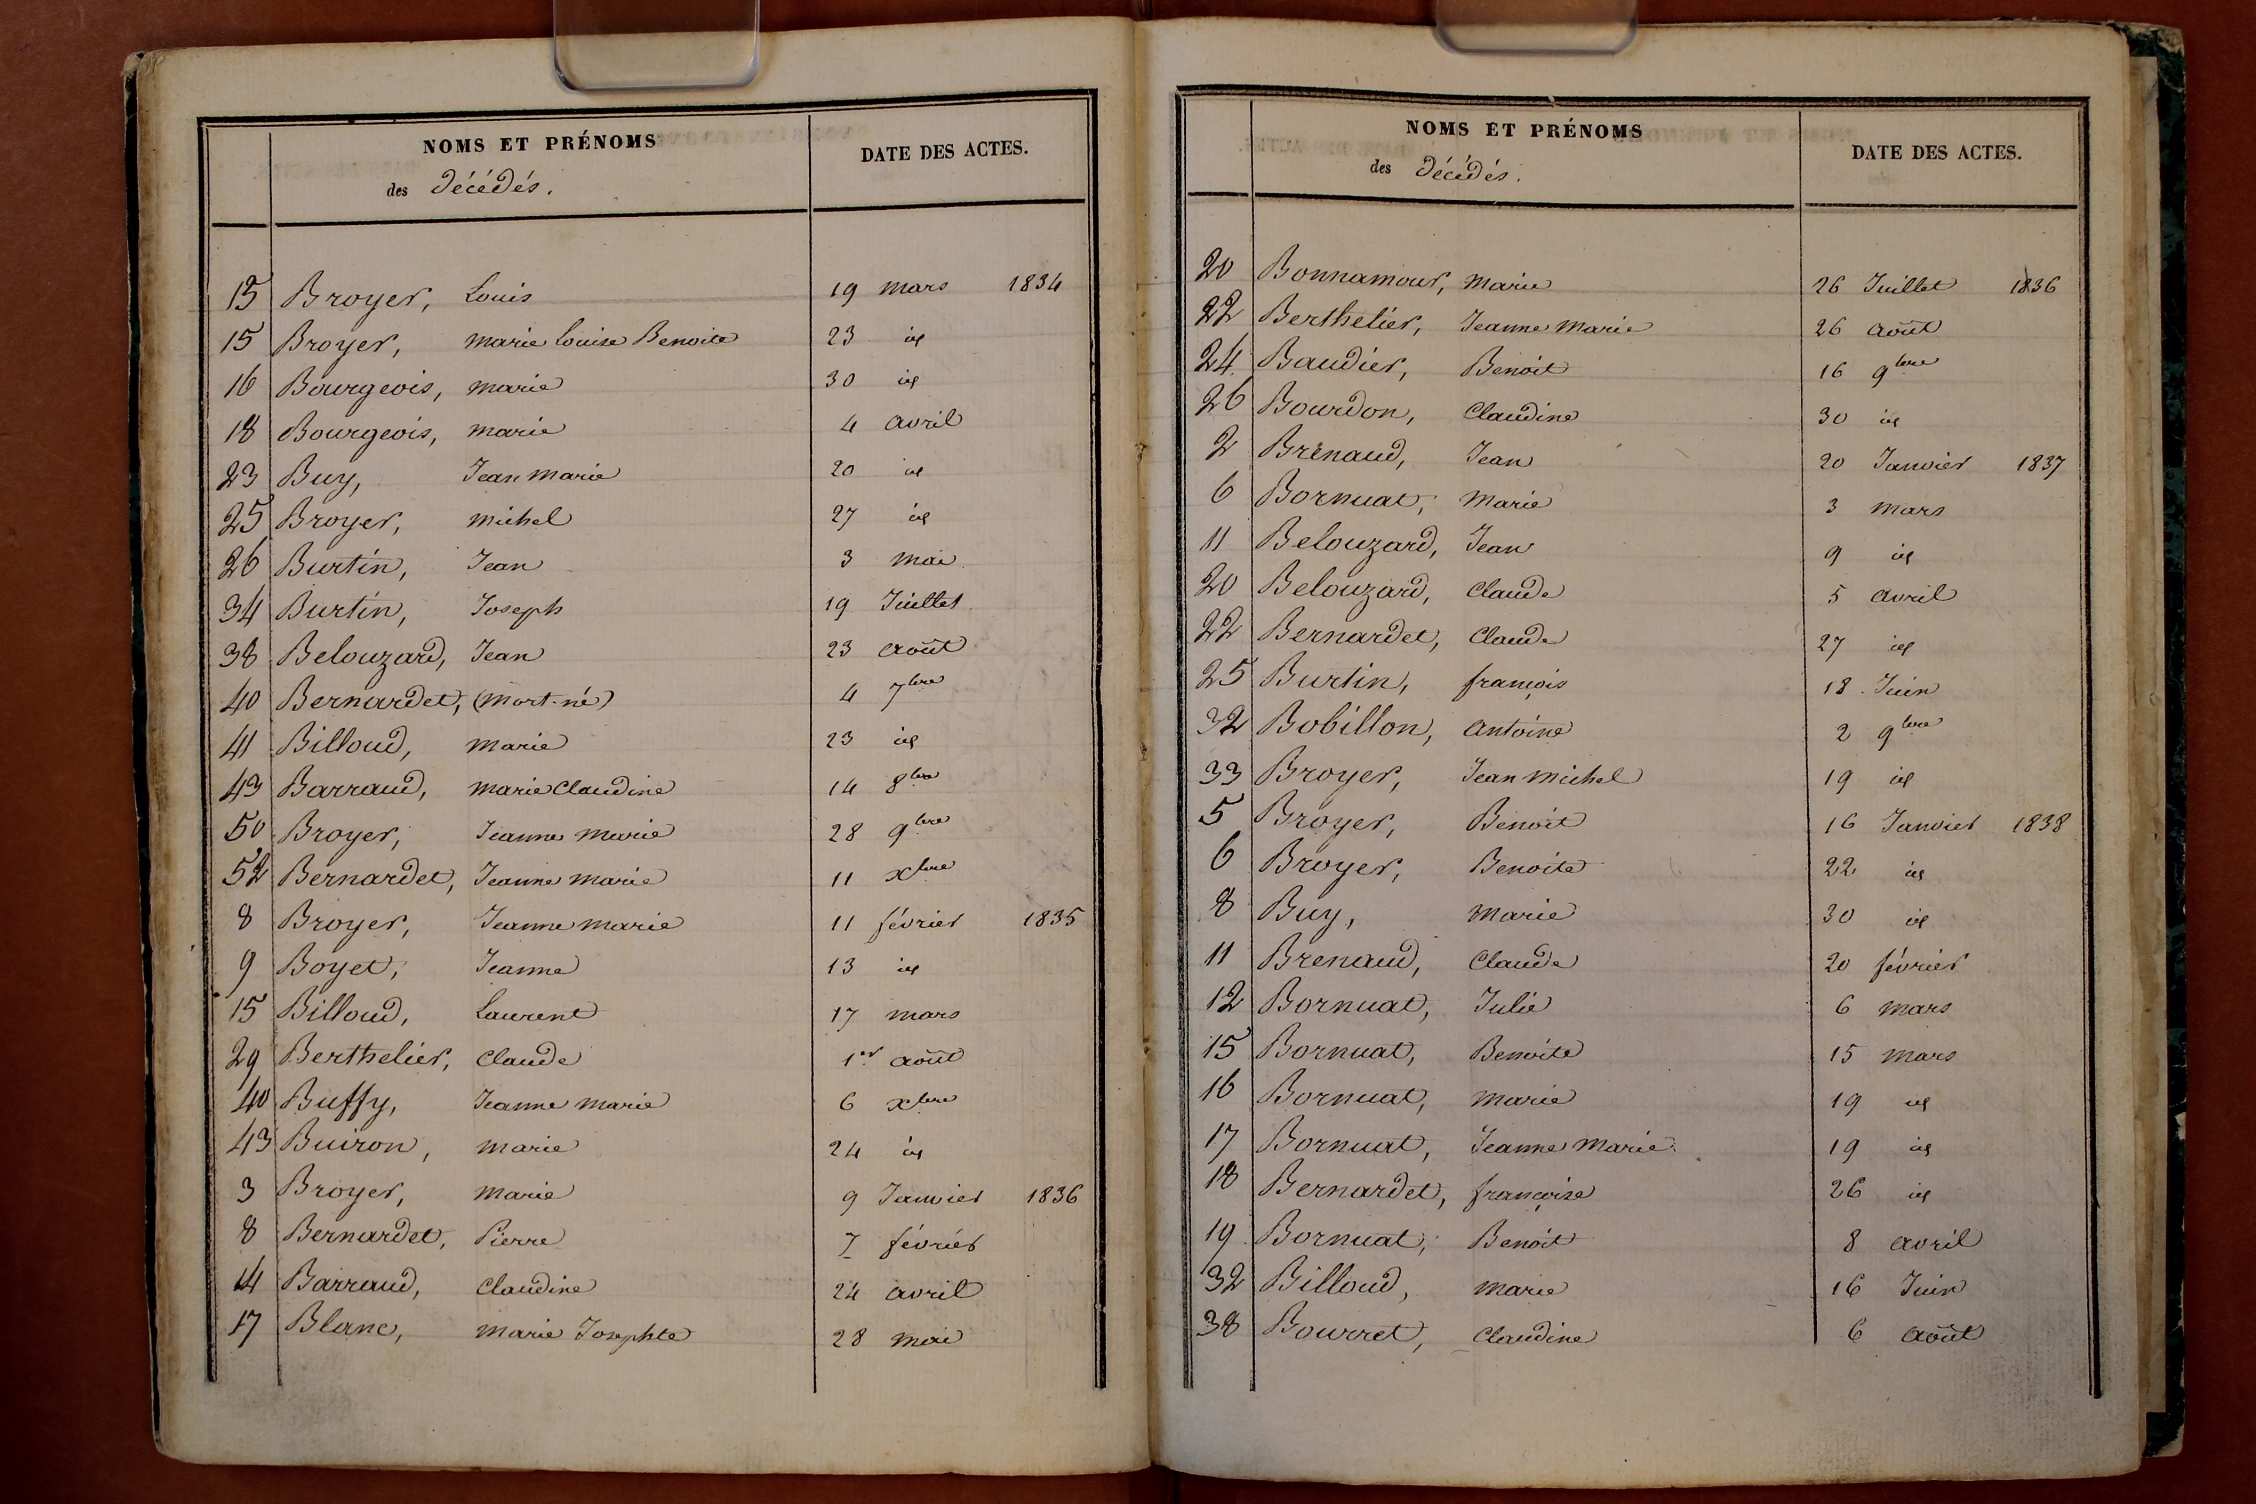 NOMS ET PRÉNOMS
des Décédés.
DATE DES ACTES.
15 Broyer, Louis 19 mars 1834
15 Broyer, marie louise Benoite 23 id
16 Bourgeois, marie 30 id
18 Bourgeois, marie 4 avril
23 Buy, Jean marie 20 id
25 Broyer, michel 27 id
26 Burtin, Jean 3 mai
34 Burtin, Joseph 19 Juillet
38 Belouzard, Jean 23 août
40 Bernardet, (mort-né) 4 7bre
41 Billoud, marie 23 id
43 Barraud, marie Claudine 14 8bre
50 Broyer, Jeanne marie 28 9bre
52 Bernardet, Jeanne marie 11 xbre
8 Broyer, Jeanne marie 11 février 1835
9 Boyet, Jeanne 13 id
15 Billoud, Laurent 17 mars
29 Berthelier, Claude 1er août
40 Buffy, Jeanne marie 6 xbre
43 Buiron, marie 24 id
3 Broyer, marie 9 Janvier 1836
8 Bernardet, Pierre 7 février
14 Barraud, Claudine 24 avril
17 Blanc, marie Josephte 28 mai
NOMS ET PRÉNOMS
des Décédés.
DATE DES ACTES.
20 Bonnamour, marie 26 Juillet 1836
22 Berthelier, Jeanne marie 26 août
24 Baudier, Benoit 16 9bre
26 Bourdon, Claudine 30 id
2 Brenaud, Jean 20 Janvier 1837
6 Bornuat, marie 3 mars
11 Belouzard, Jean 9 id
20 Belouzard, Claude 5 avril
22 Bernardet, Claude 27 id
25 Burtin, françois 18 Juin
32 Bobillon, antoine 2 9bre
33 Broyer, Jean michel 19 id
5 Broyer, Benoit 16 Janvier 1838
6 Broyer, Benoite 22 id
8 Buy, marie 30 id
11 Brenaud, Claude 20 février
12 Bornuat, Julie 6 mars
15 Bornuat, Benoite 15 mars
16 Bornuat, marie 19 id
17 Bornuat, Jeanne marie 19 id
18 Bernardet, françoise 26 id
19 Bornuat, Benoit 8 avril
32 Billoud, marie 16 Juin
38 Bourret, Claudine 6 août